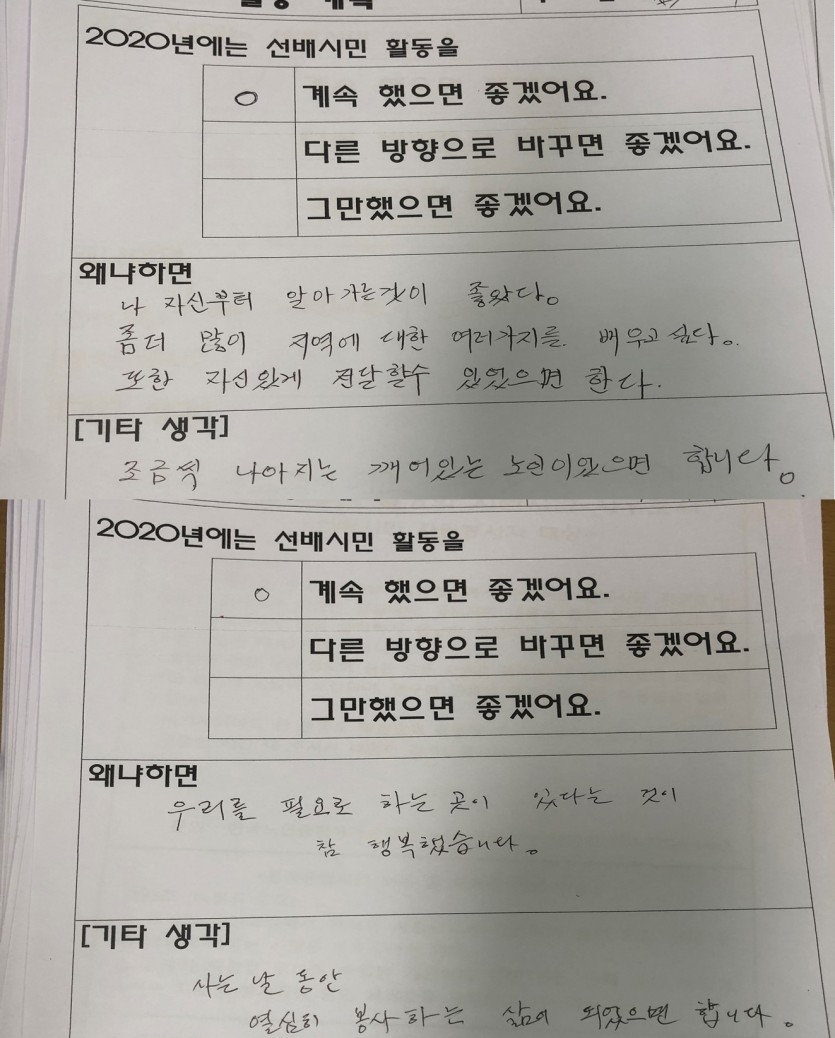 2020년에는 선배시민 활동을
○ 계속 했으면 좋겠어요.
다른 방향으로 바꾸면 좋겠어요.
그만했으면 좋겠어요.
왜냐하면
나 자신부터 알아가는것이 좋았다。
좀더 많이 지역에 대한 여러가지를 배우고 싶다。
또한 자신있게 전달할수 있었으면 한다.
[기타 생각]
조금씩 나아지는 깨어있는 노인이였으면 합니다。
2020년에는 선배시민 활동을
○ 계속 했으면 좋겠어요.
다른 방향으로 바꾸면 좋겠어요.
그만했으면 좋겠어요.
왜냐하면
우리를 필요로 하는 곳이 있다는 것이
참 행복했습니다。
[기타 생각]
사는 날 동안
열심히 봉사하는 삶이 되었으면 합니다。